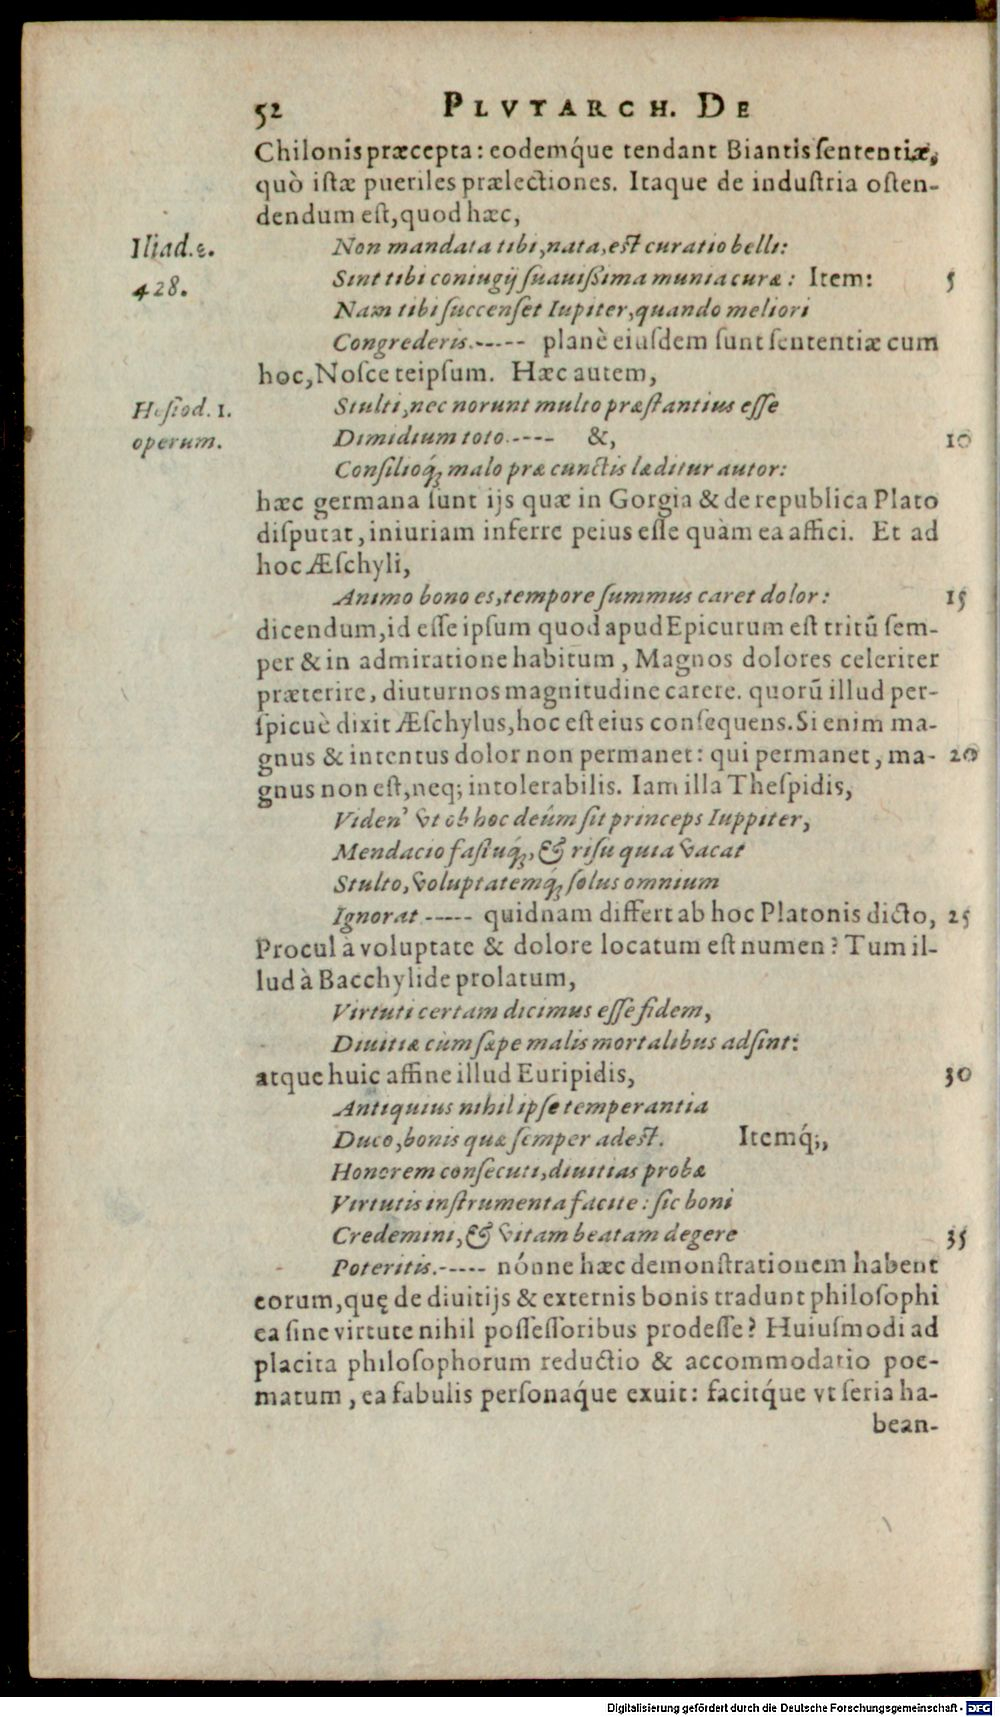 52 PLVTARCH. DE
Chilonis præcepta: eodemq́ue tendant Biantis sententiæ,
quò istæ pueriles prælectiones. Itaque de industria osten-
dendum est, quod hæc,
Iliad.ε.
428.
Non mandata tibi, nata, est curatio belli:
Sint tibi coniugij suauißima munia curæ: Item: 5
Nam tibi succenset Iupiter, quando meliori
Congrederis.----- planè eiusdem sunt sententiæ cum
hoc, Nosce teipsum. Hæc autem,
Hesiod. 1.
operum.
Stulti, nec norunt multo præstantius esse
Dimidium toto.---- &, 10
Consilioq́; malo præ cunctis læditur autor:
hæc germana sunt ijs quæ in Gorgia & de republica Plato
disputat, iniuriam inferre peius esse quàm ea affici. Et ad
hoc Æschyli,
Animo bono es, tempore summus caret dolor: 15
dicendum, id esse ipsum quod apud Epicurum est tritū sem-
per & in admiratione habitum, Magnos dolores celeriter
præterire, diuturnos magnitudine carere. quorū illud per-
spicuè dixit Æschylus, hoc est eius consequens. Si enim ma-
gnus & intentus dolor non permanet: qui permanet, ma- 20
gnus non est, neq; intolerabilis. Iam illa Thespidis,
Viden' vt ob hoc deûm sit princeps Iuppiter,
Mendacio fastuq́;, & risu quia vacat
Stulto, voluptatémq́; solus omnium
Ignorat.----- quidnam differt ab hoc Platonis dicto, 25
Procul à voluptate & dolore locatum est numen? Tum il-
lud à Bacchylide prolatum,
Virtuti certam dicimus esse fidem,
Diuitiæ cùm sæpe malis mortalibus adsint:
atque huic affine illud Euripidis, 30
Antiquius nihil ipse temperantia
Duco, bonis quæ semper adest. Itemq́;,
Honorem consecuti, diuitias probæ
Virtutis instrumenta facite: sic boni
Credemini, & vitam beatam degere 35
Poteritis.----- nónne hæc demonstrationem habent
eorum, quę de diuitijs & externis bonis tradunt philosophi
ea sine virtute nihil possessoribus prodesse? Huiusmodi ad
placita philosophorum reductio & accommodatio poe-
matum, ea fabulis personaq́ue exuit: facitq́ue vt seria ha-
bean-
Digitalisierung gefördert durch die Deutsche Forschungsgemeinschaft - DFG